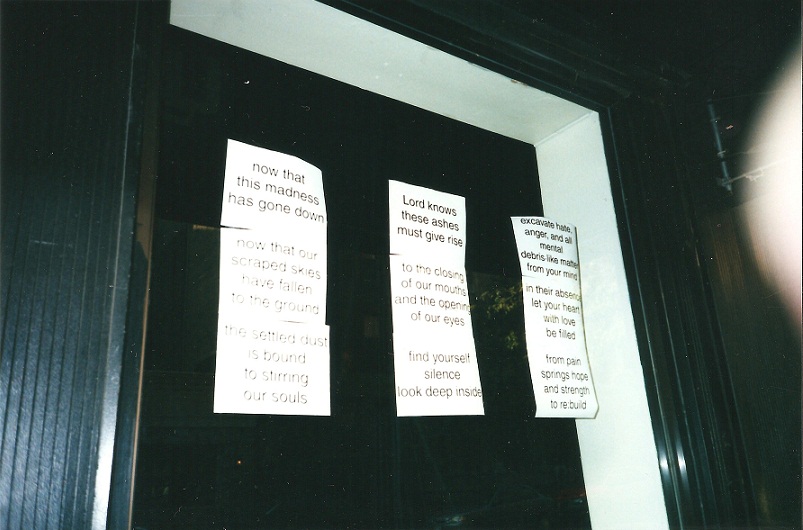 now that
this madness
has gone down
now that our
scraped skies
have fallen
to the ground
the settled dust
is bound
to stirring
our souls
Lord knows
these ashes
must give rise
to the closing
of our mouths
and the opening
of our eyes
find yourself
silence
look deep inside
excavate hate,
anger, and all
mental
debris-like matter
from your mind
in their absence
let your heart
with love
be filled
from pain
springs hope
and strength
to re:build